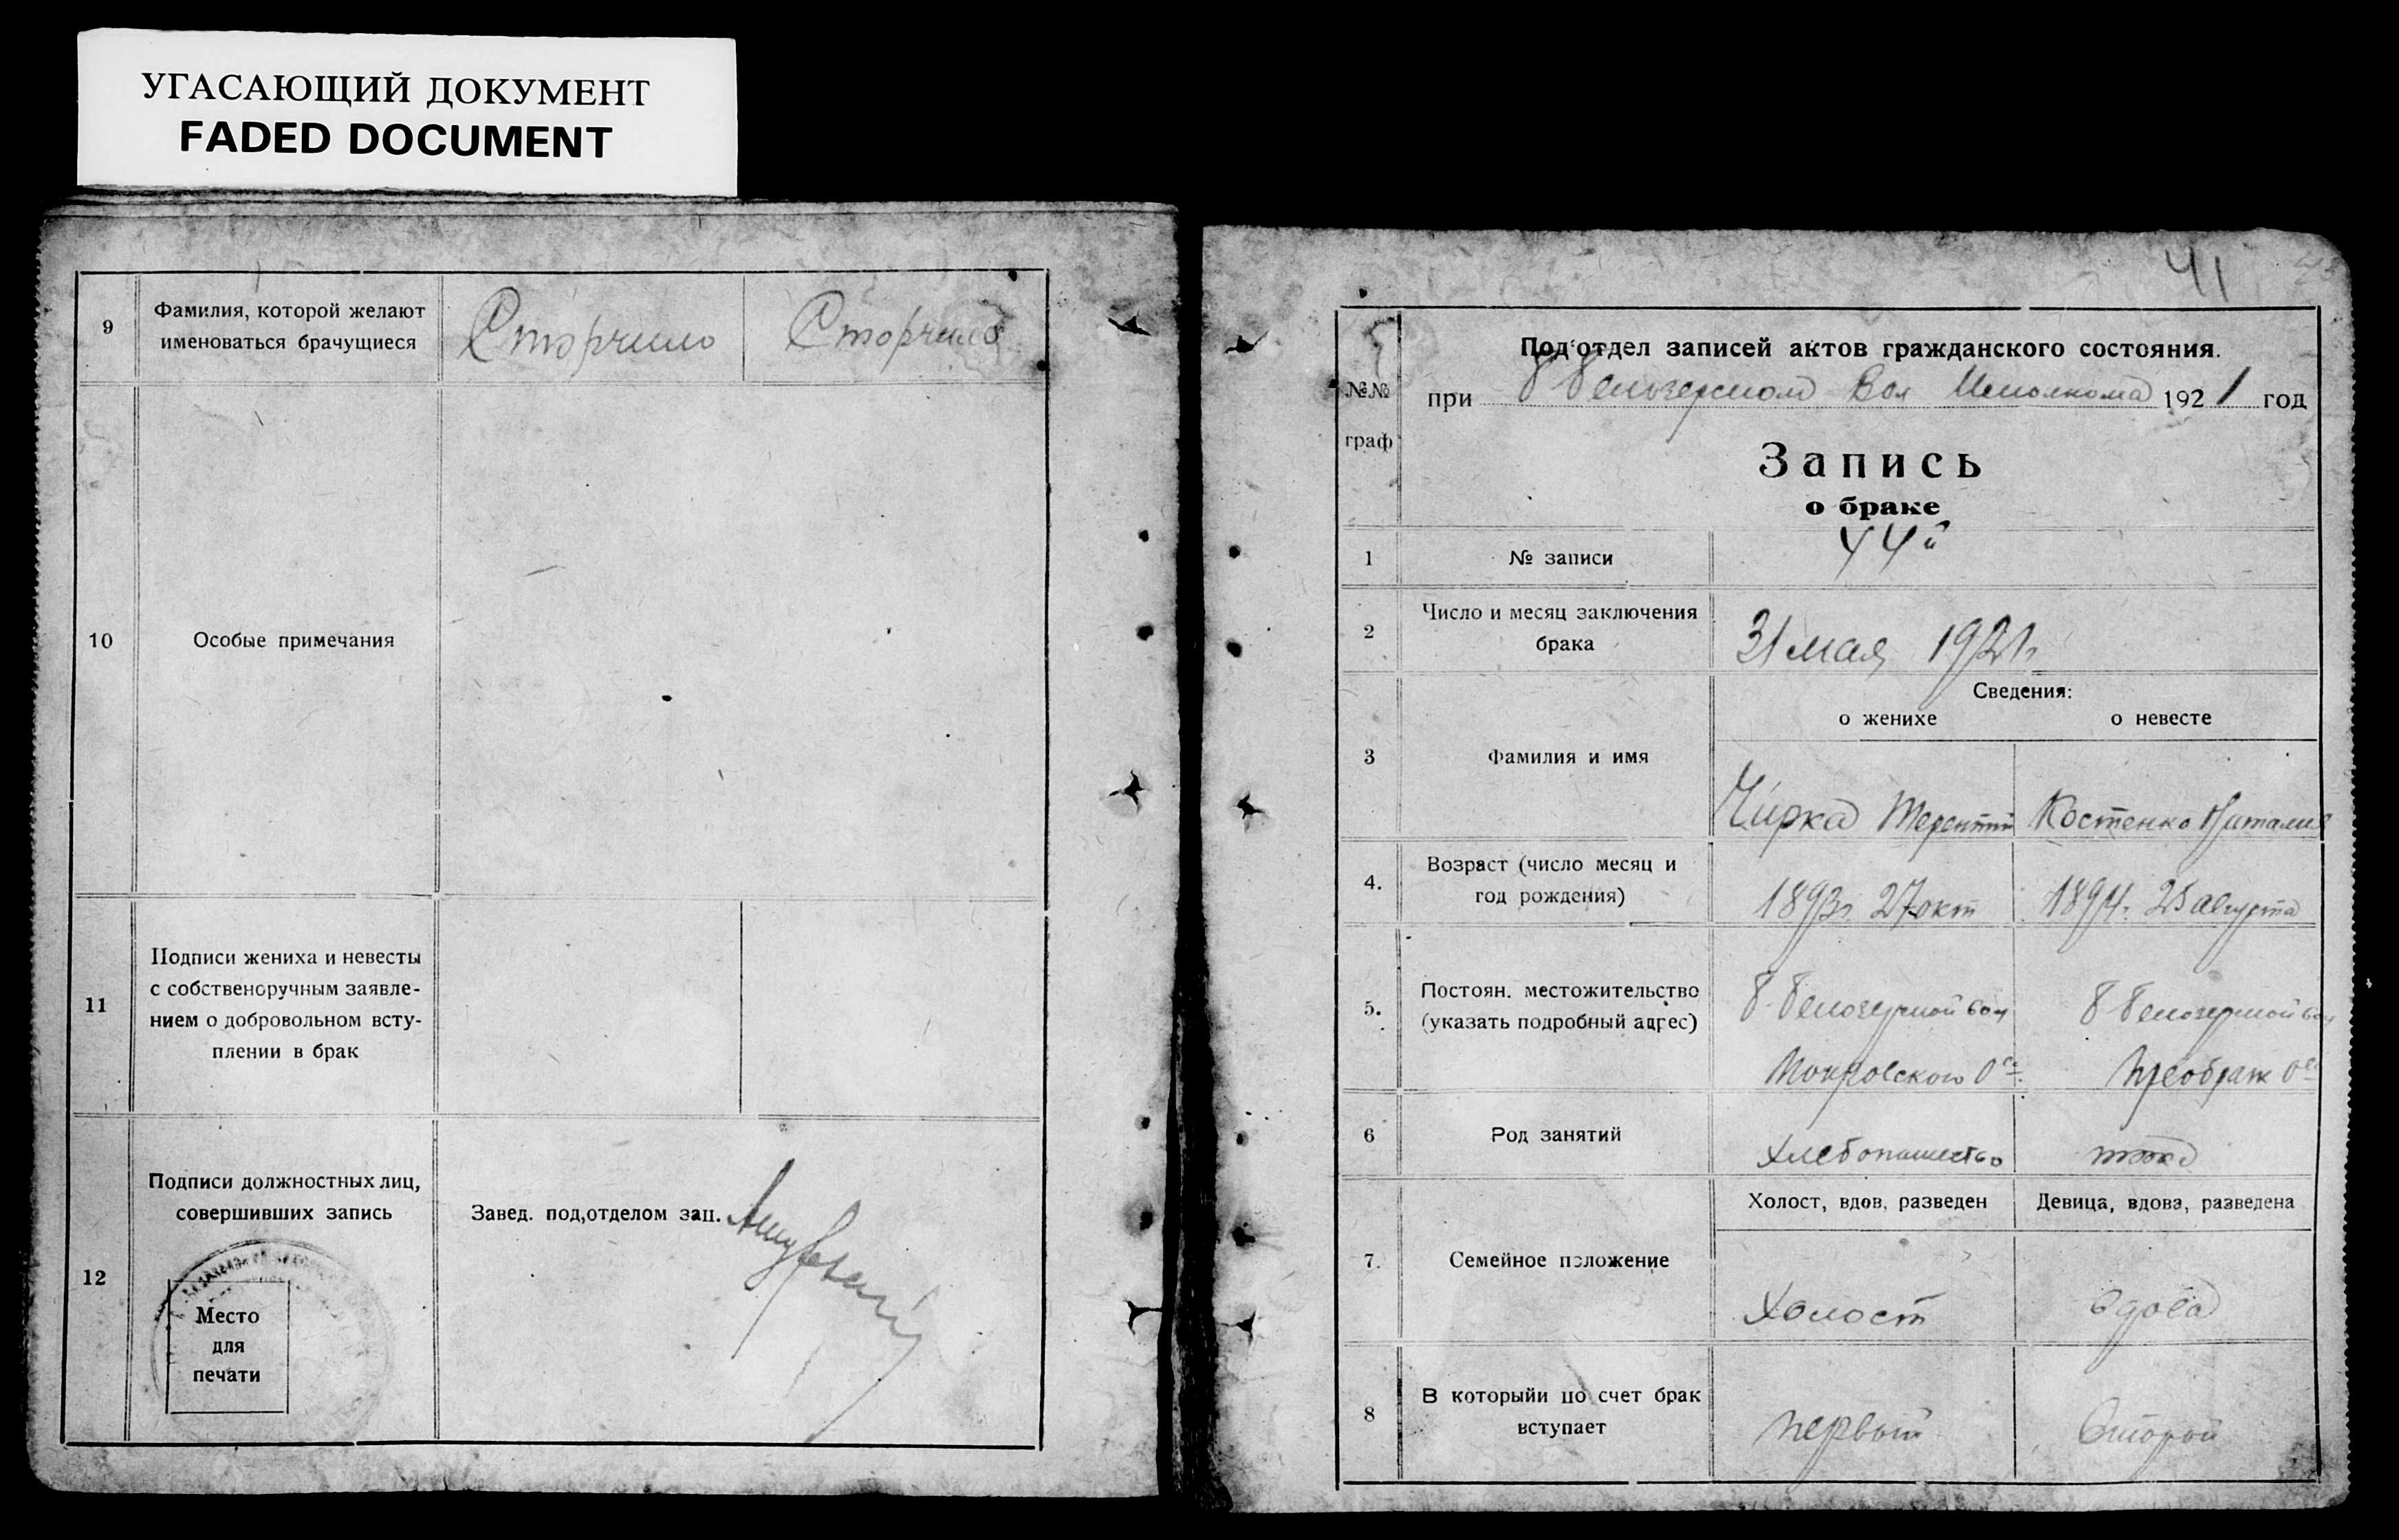 УГАСАЮЩИЙ ДОКУМЕНТ
FADED DOCUMENT
9
Фамилия, которой желают
именоваться брачущиеся
Сторчило
Сторчило
10
Особые примечания
11
Подписи жениха и невесты
с собственоручным заявле-
нием о добровольном всту-
плении в брак
12
Подписи должностных лиц,
совершивших запись
Завед. под,отделом зап.
Место
для
печати
41
№№
граф
Под'отдел записей актов гражданского состояния.
при Б Белозерском Вол Исполкома 1921 год
Запись
о браке
1
№ записи
44й
2
Число и месяц заключения
брака
31 мая 1921г
3
Фамилия и имя
Сведения:
о женихе
о невесте
Чирка Терентий
Костенко Наталия
4.
Возраст (число месяц и
год рождения)
1893г. 27 окт
1894г. 25 августа
5.
Постоян. местожительство
(указать подробный адрес)
Б-Белозерской вол
Покровского О
Б Белозерской вол
Преображ О
6
Род занятий
Хлебопашество
тоже
7.
Семейное положение
Холост, вдов, разведен
Девица, вдова, разведена
Холост
вдова
8
В которыйи по счет брак
вступает
первый
второй